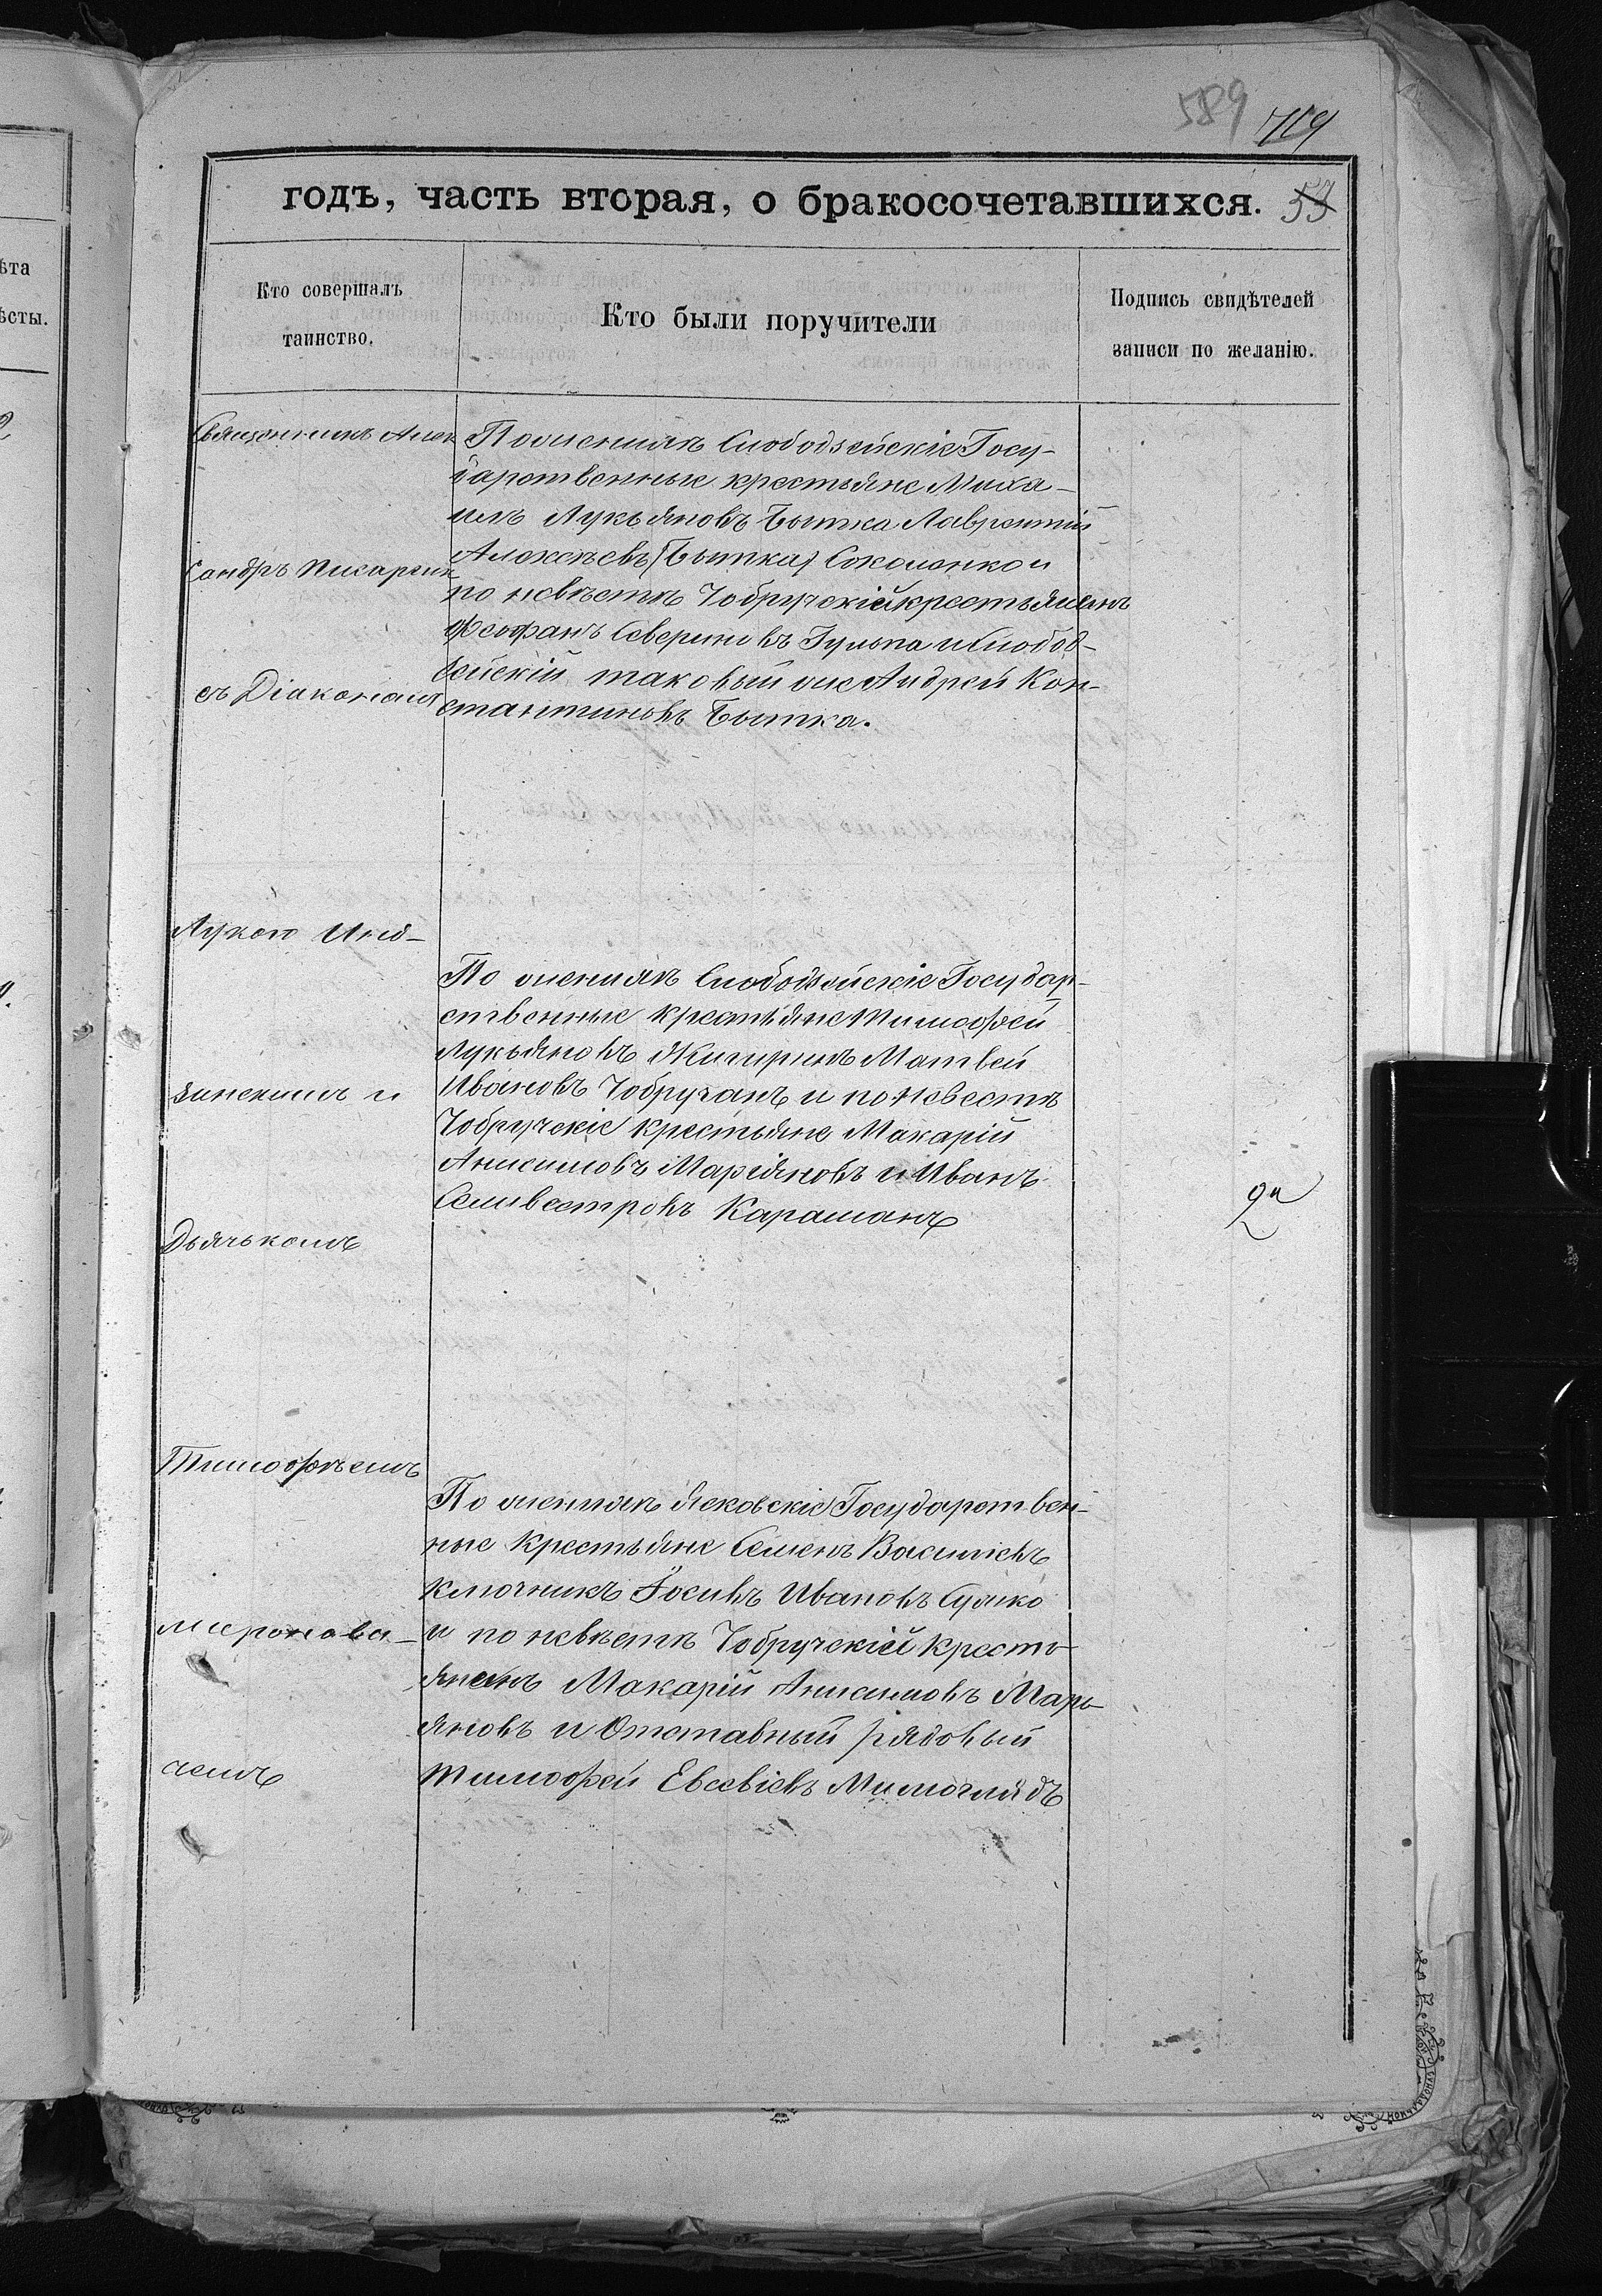 589 719
годъ, часть вторая, о бракосочетавшихся. 53
ѣта
ѣсты.
Кто совершалъ
таинство.
Кто были поручители
Подпись свидѣтелей
записи по желанію.
Священникъ Алек
сандръ Писаржик
съ Діакономъ
Лукою Инд-
зинскимъ и
Дьячькомъ
Тимофѣемъ
Миронови-
чемъ
По женихѣ Слободзейскіе Госу-
дарственные крестьяне Миха-
илъ Лукьяновъ Бытка Лаврентій
Алексѣевъ (Бытка) Соколенко и
по невѣстѣ Чобручскій крестьянинъ
Феофанъ Северинивъ Гульпа и Слобод-
зейскій таковый же Андрей Кон-
стантиновъ Бытка.
По женихѣ Слободзейскіе Государ-
ственные крестьяне Тимофей
Лукьяновъ Жигиринъ Матвей
Ивановъ Чобручанъ и по невестѣ
Чобручскіе крестьяне Макарій
Анисимовъ Маріяновъ и Иванъ
Селивестровъ Караманъ
По женихѣ Ясковскіе Государствен-
ные крестьяне Семенъ Василіевъ
Ключникъ Іосивъ Ивановъ Сулико
и по невѣстѣ Чобручскій кресть-
янинъ Макарій Анисимовъ Марь-
яновъ и Отставный рядовый
Тимофей Евсевіевъ Мимоглядъ